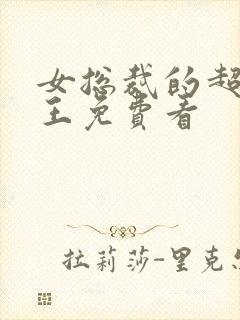 女总裁的超
王免費看
拉莉莎-里克